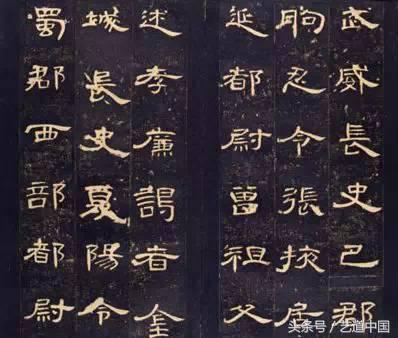 武威長史巴郡
朐忍令張掖居
延都尉曾祖父
述孝廉謁者金
城長史夏陽令
蜀郡西部都尉
头条号／艺道中国